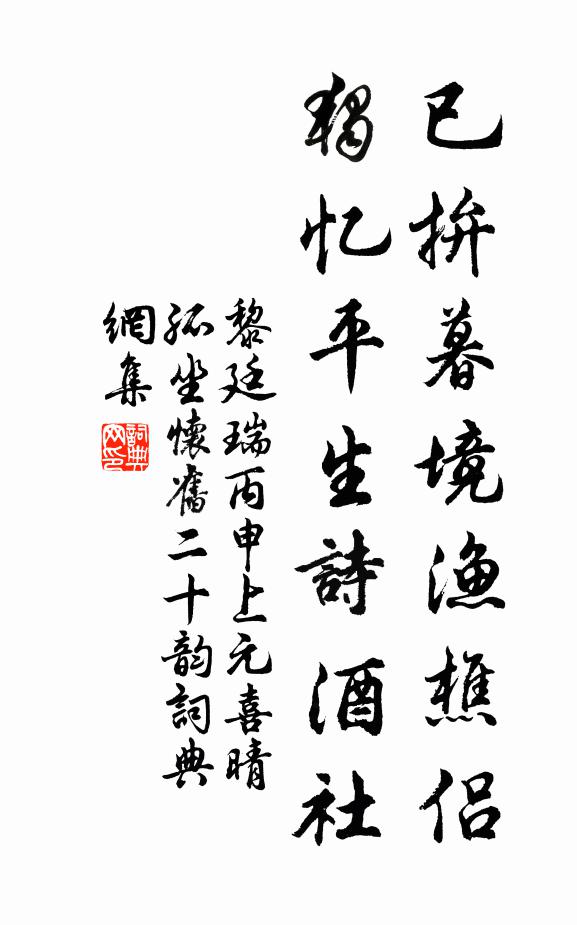 已拚暮境漁樵侣
独忆平生詩酒社
黎廷瑞丙申上元喜晴
孤坐懷舊二十韵詞典
網集
詞典
网印